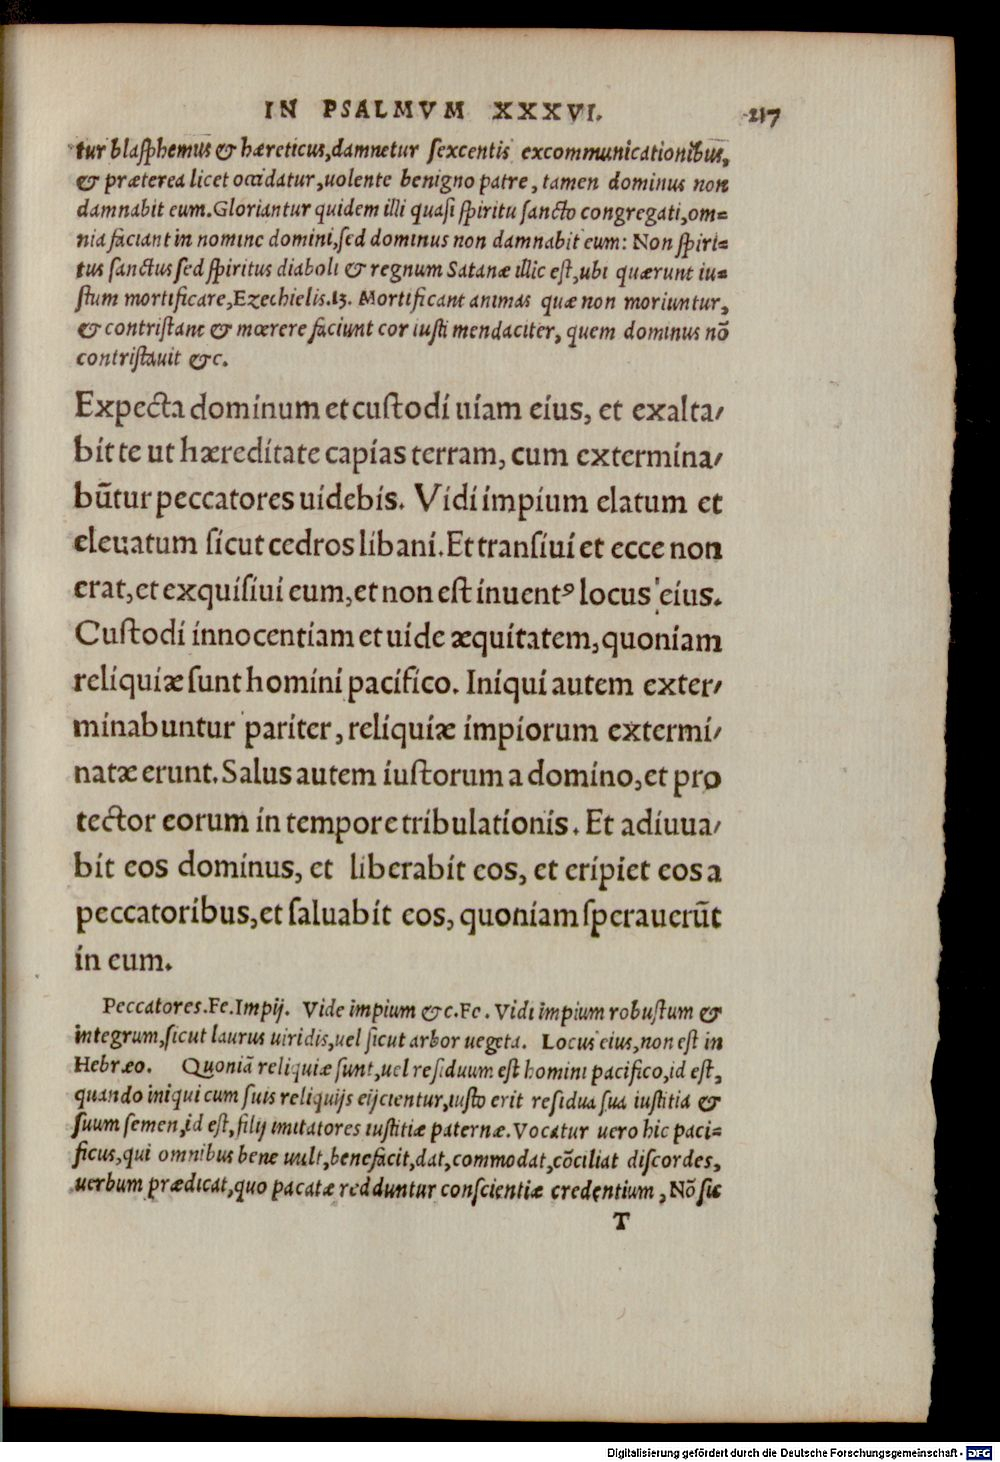 IN PSALMVM XXXVI. 217
tur blasphemus & hæreticus, damnetur sexcentis excommunicationibus,
& præterea licet occidatur, uolente benigno patre, tamen dominus non
damnabit eum. Gloriantur quidem illi quasi spiritu sancto congregati, om=
nia faciant in nomine domini, sed dominus non damnabit eum: Non spiri=
tus sanctus sed spiritus diaboli & regnum Satanæ illic est, ubi quærunt iu=
stum mortificare, Ezechielis.13. Mortificant animas quæ non moriuntur,
& contristant & mœrere faciunt cor iusti mendaciter, quem dominus nõ
contristauit &c.
Expecta dominum et custodi uiam eius, et exalta/
bit te ut hæreditate capias terram, cum extermina/
bũtur peccatores uidebis. Vidi impium elatum et
eleuatum sicut cedros libani. Et transiui et ecce non
erat, et exquisiui eum, et non est inuentꝰ locus eius.
Custodi innocentiam et uide æquitatem, quoniam
reliquiæ sunt homini pacifico. Iniqui autem exter/
minabuntur pariter, reliquiæ impiorum extermi/
natæ erunt. Salus autem iustorum a domino, et pro
tector eorum in tempore tribulationis. Et adiuua/
bit eos dominus, et liberabit eos, et eripiet eos a
peccatoribus, et saluabit eos, quoniam sperauerũt
in eum.
Peccatores. Fe. Impij. Vide impium &c. Fe. Vidi impium robustum &
integrum, sicut laurus uiridis, uel sicut arbor uegeta. Locus eius, non est in
Hebræo. Quoniã reliquiæ sunt, uel residuum est homini pacifico, id est,
quando iniqui cum suis reliquijs eijcientur, iusto erit residua sua iustitia &
suum semen, id est, filij imitatores iustitiæ paternæ. Vocatur uero hic paci=
ficus, qui omnibus bene uult, benefacit, dat, commodat, cõciliat discordes,
uerbum prædicat, quo pacatæ redduntur conscientiæ credentium, Nõ sic
T
Digitalisierung gefördert durch die Deutsche Forschungsgemeinschaft - DFG